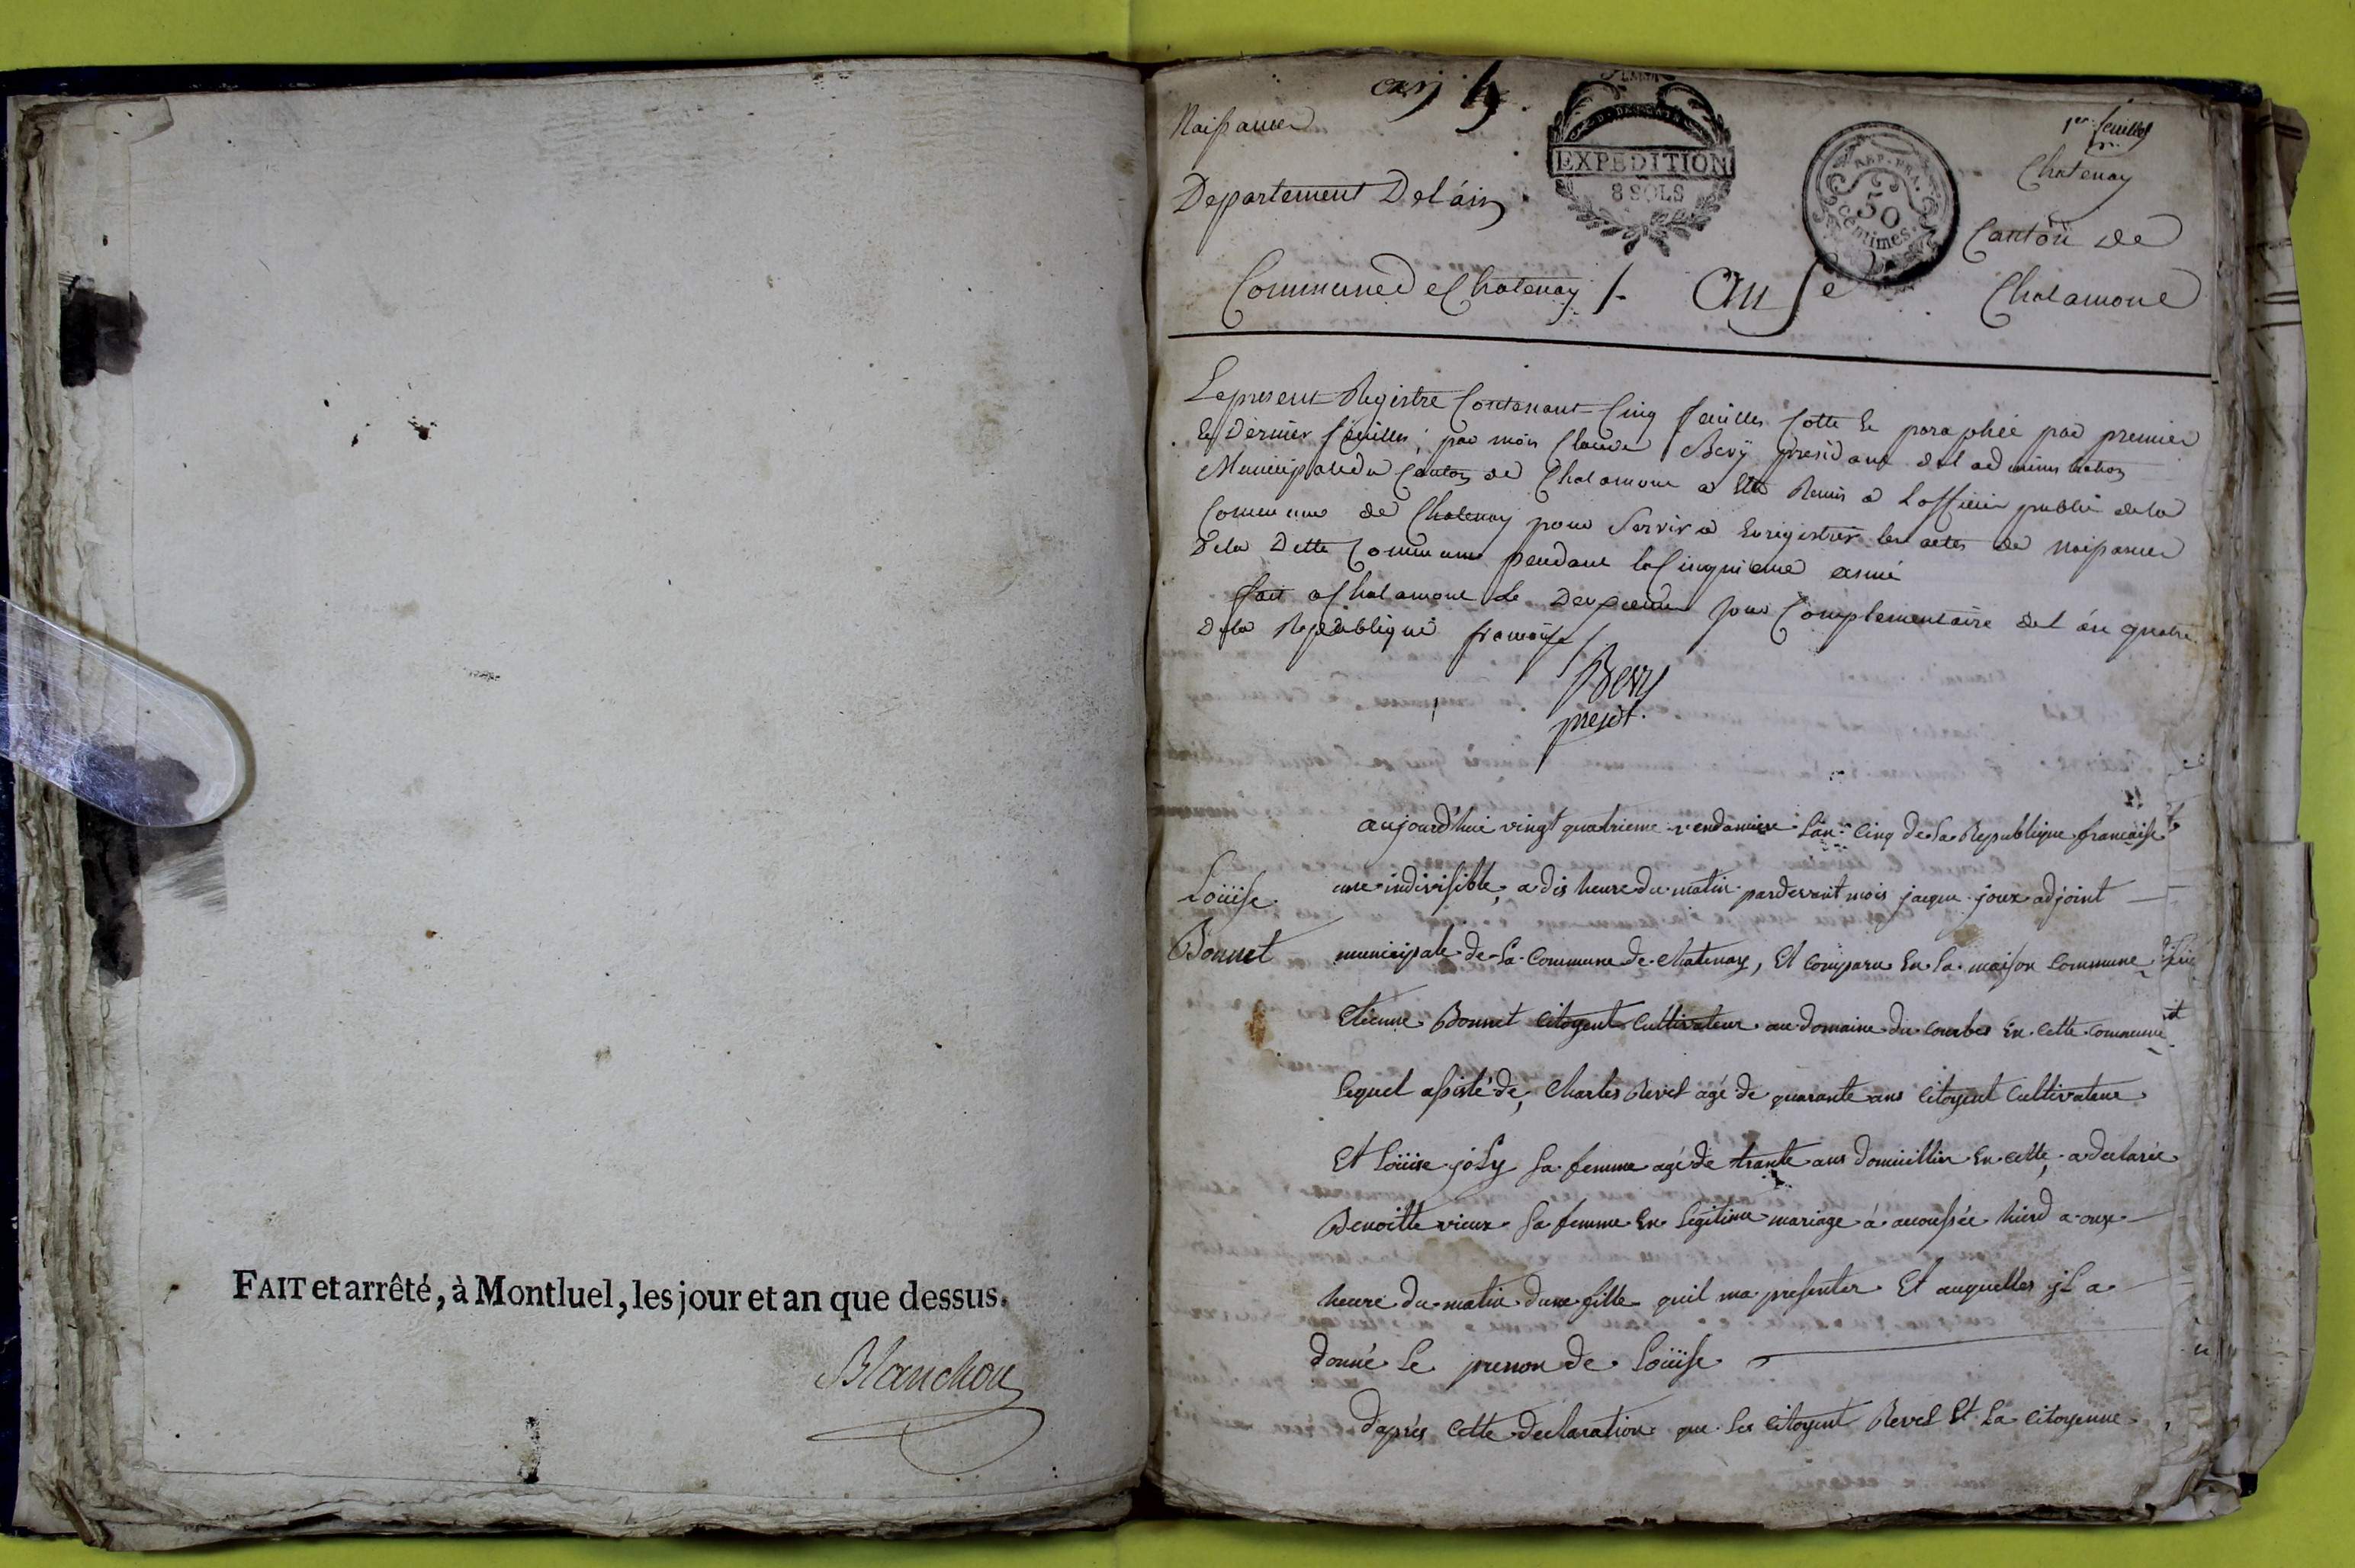 FAIT et arrêté, à Montluel, les jour et an que dessus.
Blanchon
Naissances
1er feuillet
Chatenay
EXPEDITION
8 SOLS
REP. FRA.
50
centimes
Departement Deláin
Canton de
Commune De Chatenay /. an 5e
Chalamont
Le present Registre Contenant Cinq feuilles Cotté Et paraphée par premier
Et Dernier feuillet, par mois Claude Bevy président del administration
Municipale du Canton de Chalamont a Eté Remis a Lofficier public de la
Commune de Chatenay pour Servir a Enregistrer les actes de naissances
De la Dette Commune pendant la Cinquieme année
fait a Chalamont Le Deuxieme jour Complementaire del án quatre
De la Republique francaise /
Bevy
presdt.
aujourd'hui vingt quatrieme vendamiere Lan Cinq de la Republique francaise
Loüise
Bonnet
une indivisible, a dis heure du matin pardevant mois jacque joux adjoint
municipale de La Commune de Chatenay, Et comparu En La maison Commune
Etienne Bonnet Citoyent Cultivateur au domaine du Combes En Cette Commune
Lequel assisté de, Charles Revel agé de quarante ans Citoyent Cultivateur
Et Loüise joly sa femme agé de trante ans domicillier En cette, a declarée
Benoitte vieux sa femme En Legitime mariage á acousséé hierd a onze
heure du matin dune fille quil ma presenter Et auquelles jl a
donné Le prenon de Loüise
dáprés Cette declaration que Les Citoyent Revel Et La Citoyenne